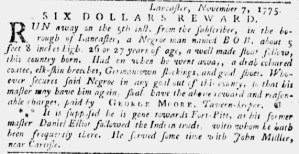 Lancaster, November 7, 1775.
SIX DOLLARS REWARD.
RUN away on the 5th inst. from the subscriber, in the bo-
rough of Lancaster, a Negroe man named BOB, about 5
feet 8 inches high, 26 or 27 years of age, a well made stout fellow,
this country born. Had on when he went away, a drab coloured
coatee, elk-skin breeches, Germantown stockings, and good shoes. Who-
ever secures said Negroe in any goal out of this county, so that his
master may have him again, shall have the above reward and reason-
able charges, paid by GEORGE MOORE, Tavern-keeper.
It is supposed he is gone towards Fort-Pitt, as his former
master Daniel Elliot followed the Indian trade, with whom he hath
been frequently there. He served some time with John Miller,
near Carlisle.